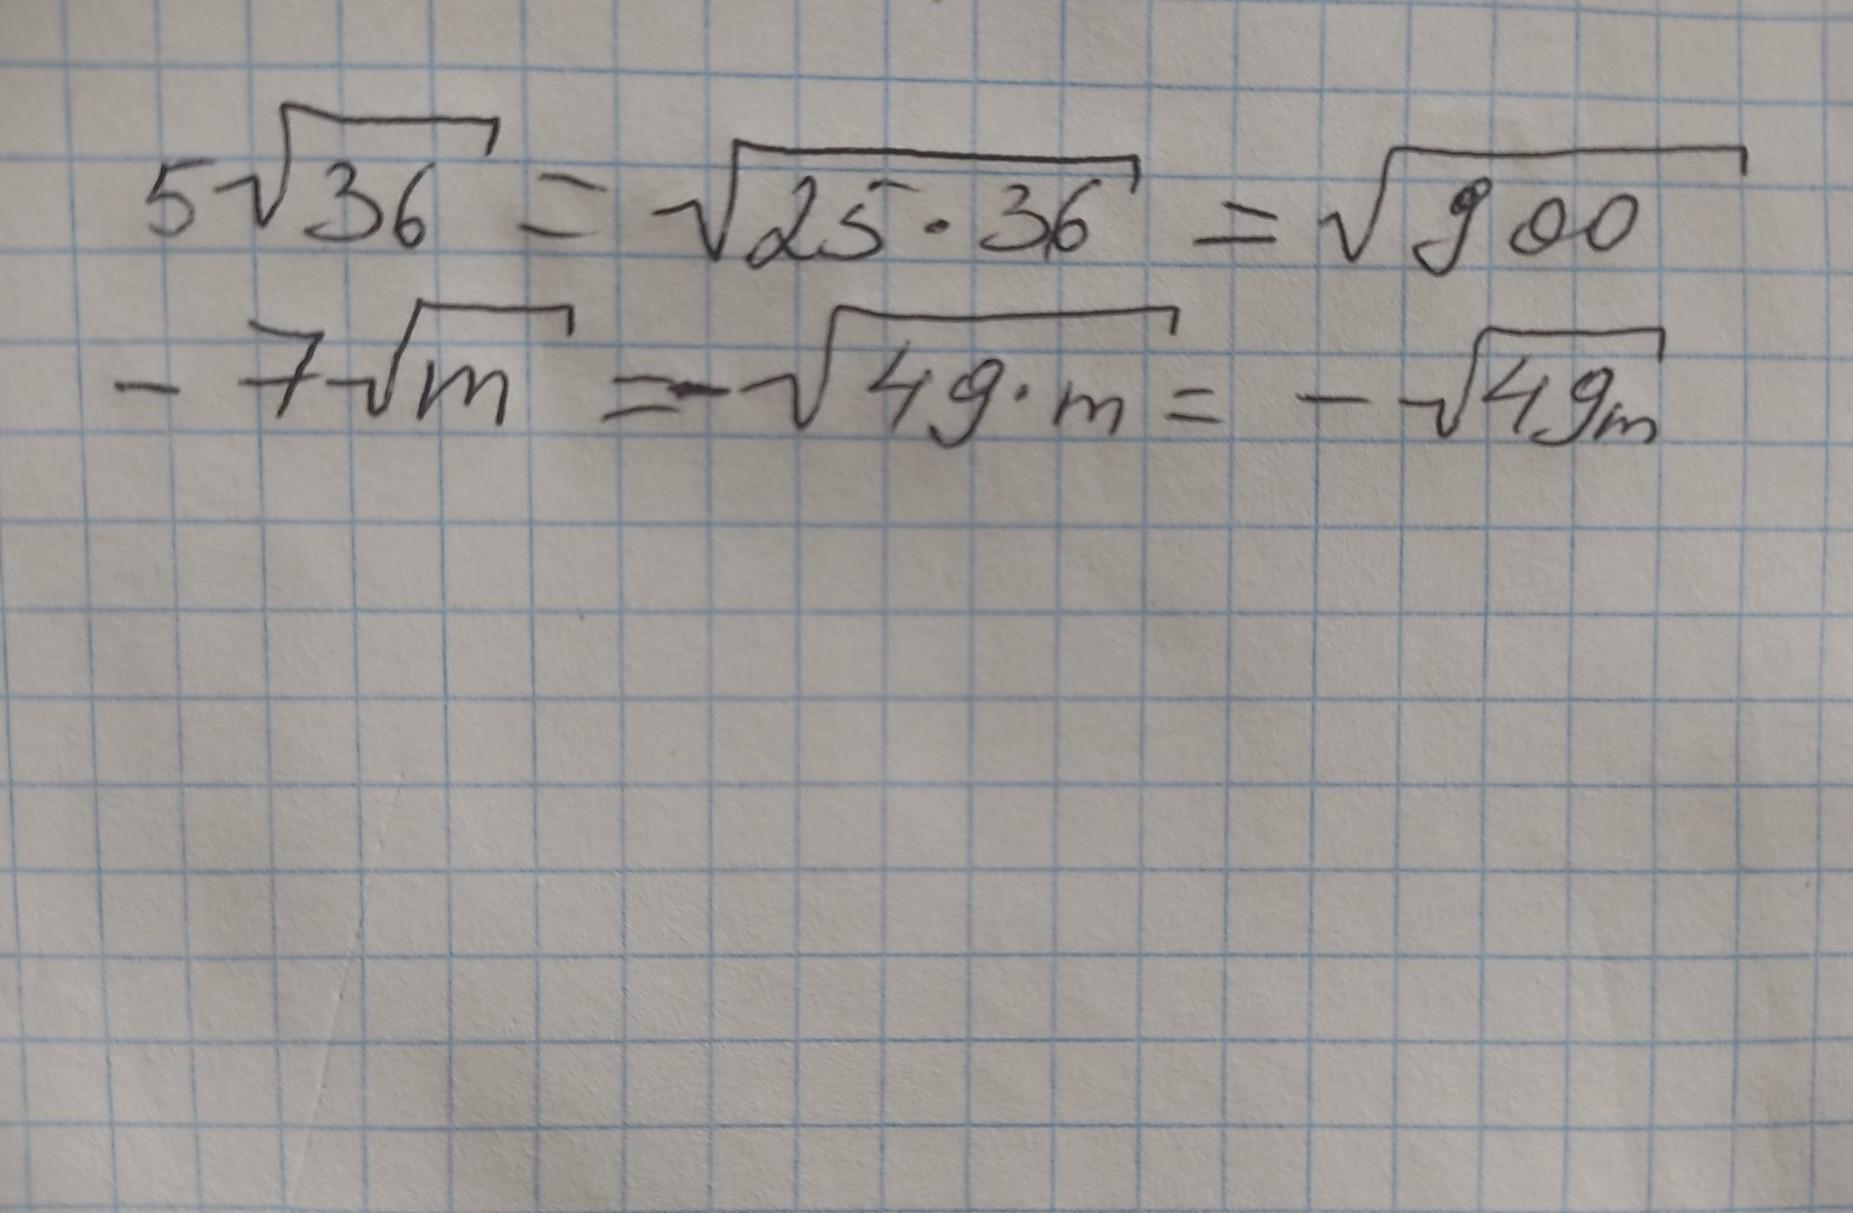 5√36 = √25·36 = √900
- 7√m = -√49·m = -√49m